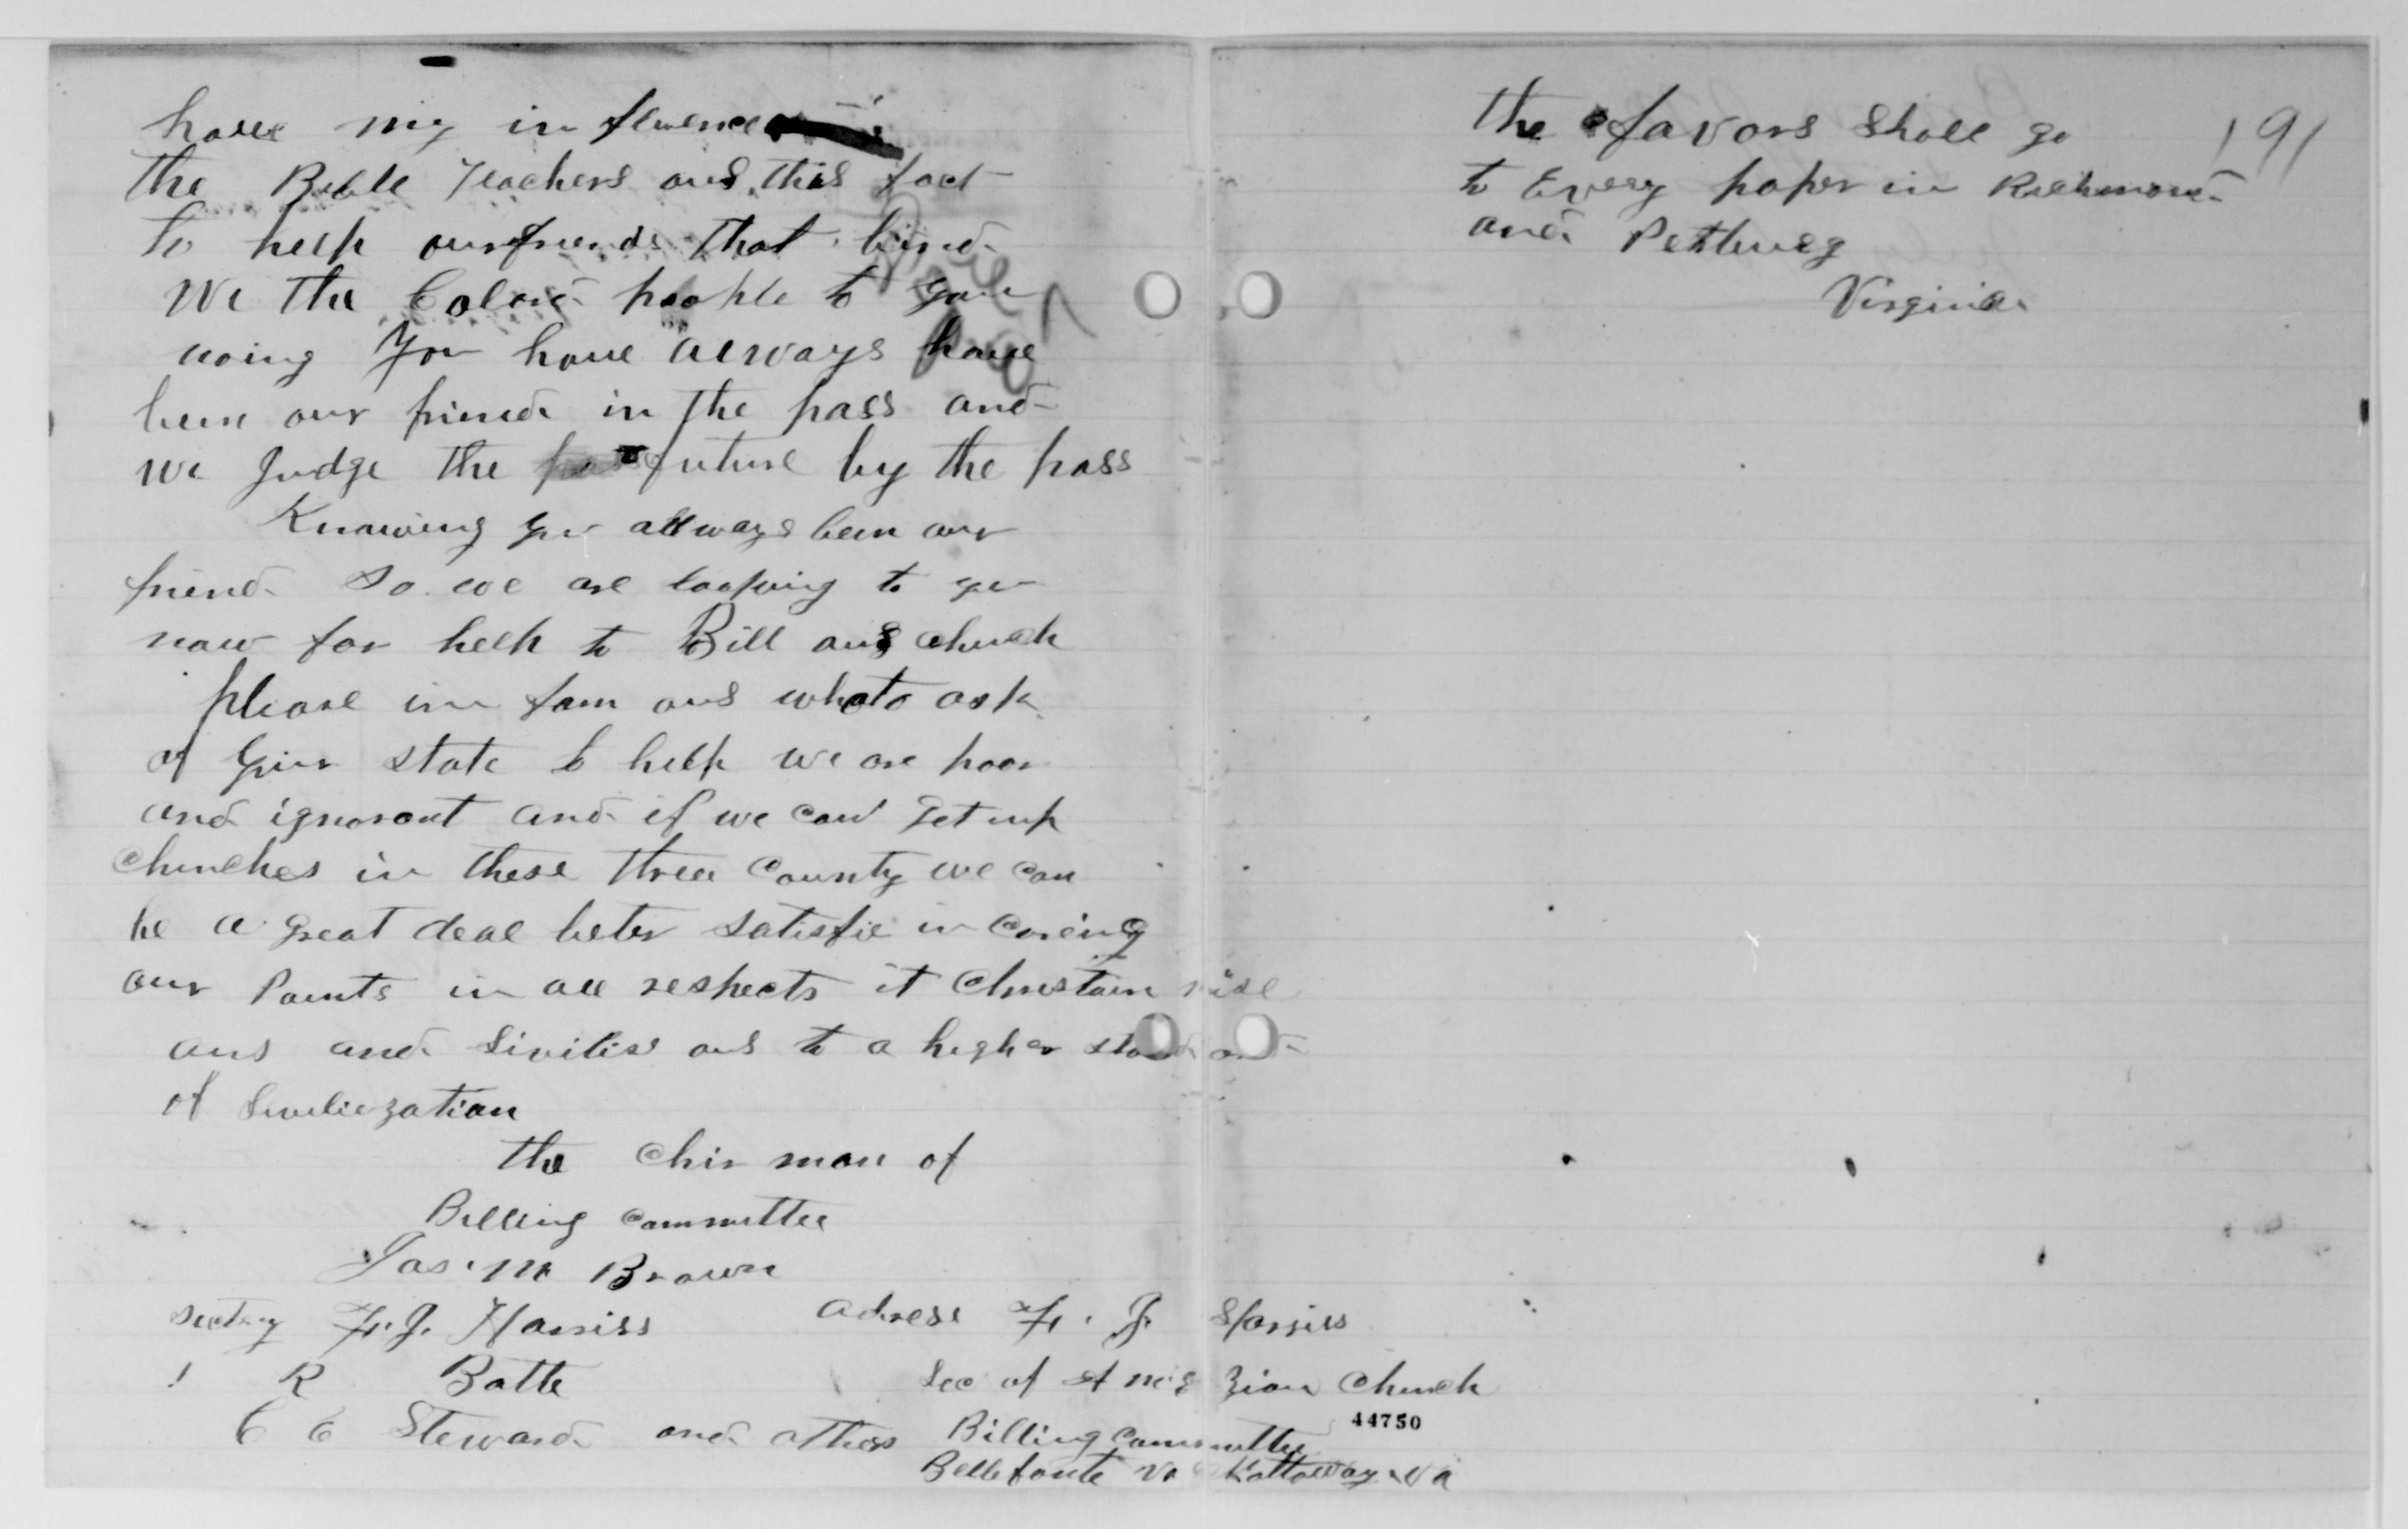 have my in fluence
the Bible Teachers aus this fact
to help our friends that bind
we the Colord people to you
noing you have always have
been our friend in the pass and
we Judge the future by the pass
Knowing you allways been our
friend So we are looking to you
now for help to Bill aus church
please in fom aus what to ask
of your state to help we are poor
and ignorant and if we can get up
churches in these three County we can
be a great deal beter satisfie in caring
our Points in all respects it Christain rise
aus and Sivilise aus to a higher stand
of Siviliezation
the Chir man of
Billing Committee
Jas. M Brown
Sectary F. J. Harriss
R Batte
C C Steward and others
Adress F. J. Harriss
Sec of A M E Zion Church
Billing Committee
Bellefonte Va Nottoway Va
44750
the favors shall go
to Every paper in Richmond
and Pettburg
Virginia
191